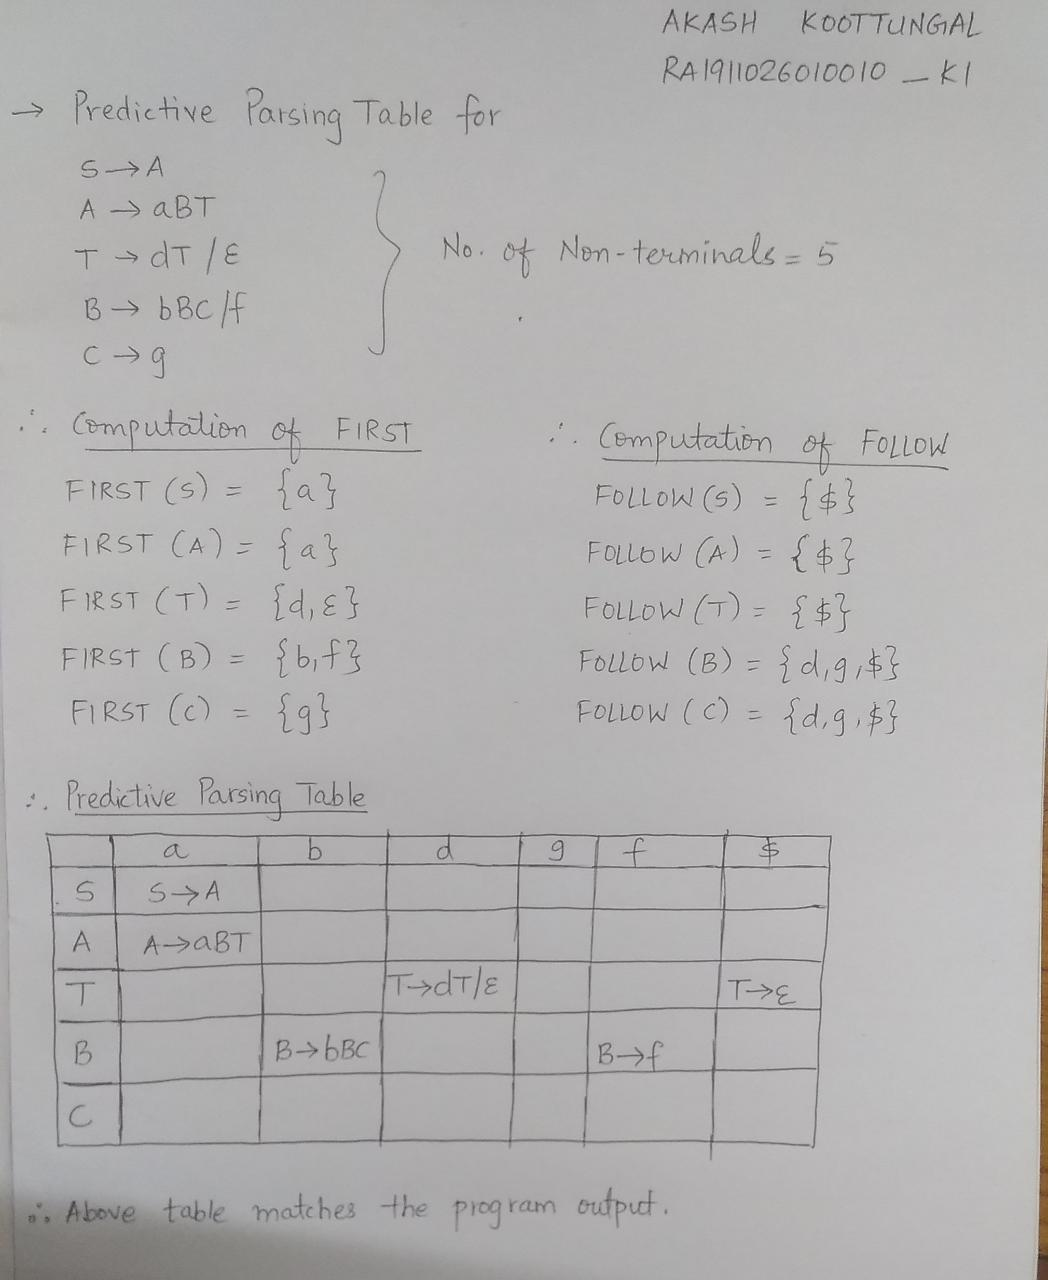 AKASH KOOTTUNGAL
RA1911026010010 – K1
→ Predictive Parsing Table for
S → A
A → aBT
T → dT / ε
B → bBC / f
C → g
No. of Non-terminals = 5
∴ Computation of FIRST
FIRST (S) = {a}
FIRST (A) = {a}
FIRST (T) = {d, ε}
FIRST (B) = {b, f}
FIRST (C) = {g}
∴ Computation of FOLLOW
FOLLOW (S) = {$}
FOLLOW (A) = {$}
FOLLOW (T) = {$}
FOLLOW (B) = {d, g, $}
FOLLOW (C) = {d, g, $}
∴ Predictive Parsing Table
a b d g f $
S S→A
A A→aBT
T T→dT/ε T→ε
B B→bBC B→f
C
∴ Above table matches the program output.